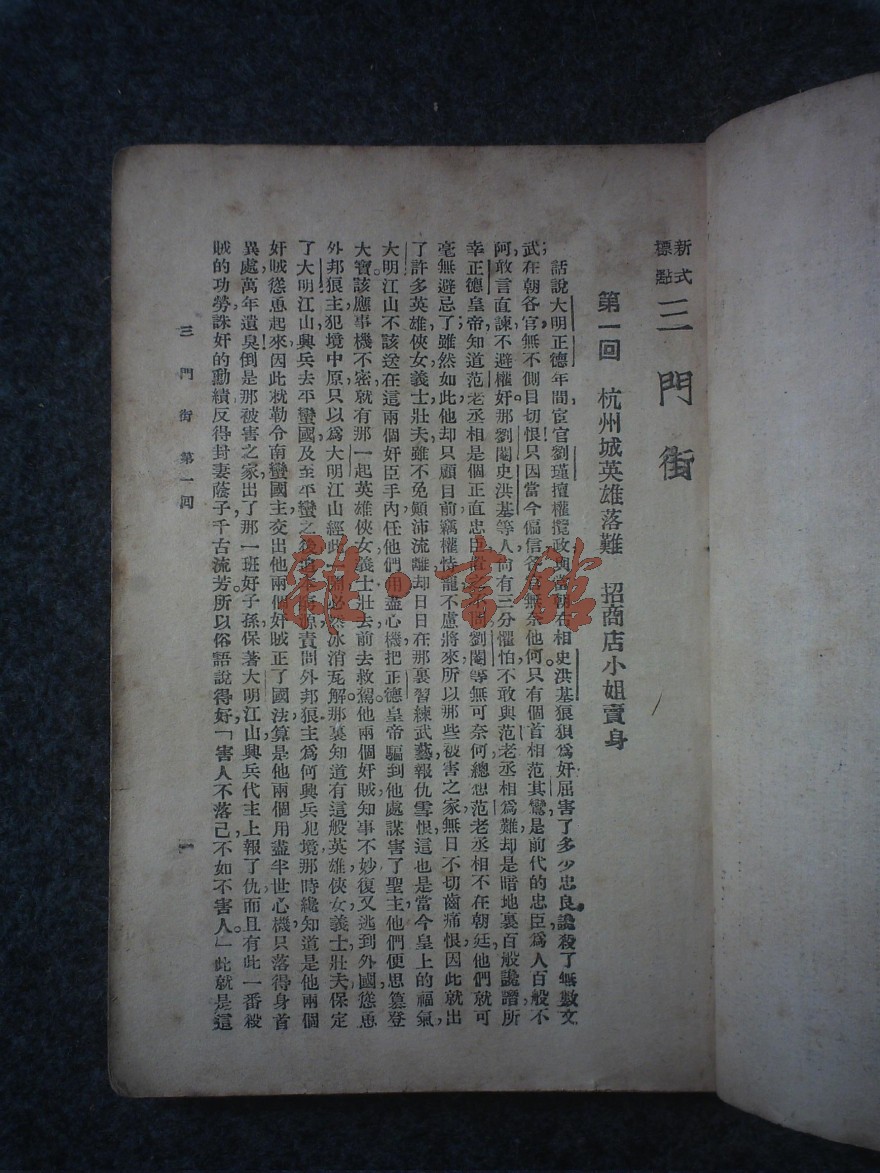 新式標點 三門街
第一回 杭州城英雄落難 招商店小姐賣身
話說大明正德年間宦官劉瑾擅權攬政與當朝右相史洪基狼狽爲奸屈害了多少忠良讒殺了無數文
武在朝各官無不側目切恨只因當今偏信各官無奈他何只有個首相范其鸞是前代的忠臣爲人百般不
阿敢言直諫不避權奸那劉閹史洪基等人尚有三分懼怕不敢與范老丞相爲難却是暗地裏百般讒譖所
幸正德皇帝知道范老丞相是個正直忠臣 劉閹等無可奈何總想范老丞相不在朝廷他們就可
毫無避忌了雖然如此他却只顧目前竊權恃寵不慮將來所以那些被害之家無日不切齒痛恨因此就出
了許多英雄俠女義士壯夫雖不免顛沛流離却日日在那裏習練武藝報仇雪恨這也是當今皇上的福氣
大明江山不該送在這兩個奸臣手內任他們用盡心機把正德皇帝驅到他處謀害了聖主他們便思篡登
大寶該應事機不密就有那一起英雄俠女義士壯夫前去救駕他兩個奸賊知事不妙復又逃到外國慫恿
外邦狼主犯境中原只以爲大明江山經此一鬧必然冰消瓦解那裏知道有這般英雄俠女義士壯夫保定
了大明江山興兵去平蠻國及至平蠻之後 責問外邦狼主爲何興兵犯境那時纔知道是他兩個
奸賊慫恿起來因此就勒令南蠻國主交出他兩個奸賊正了國法算是他兩個用盡半世心機只落得身首
異處萬年遺臭倒是那被害之家出了那一班好子孫保著大明江山興兵代主上報了仇而且有此一番殺
賊的功勞誅奸的勳績反得封妻蔭子千古流芳所以俗語說得好「害人不落己不如不害人」此就是這
三門街 第一回 一
雜·書館